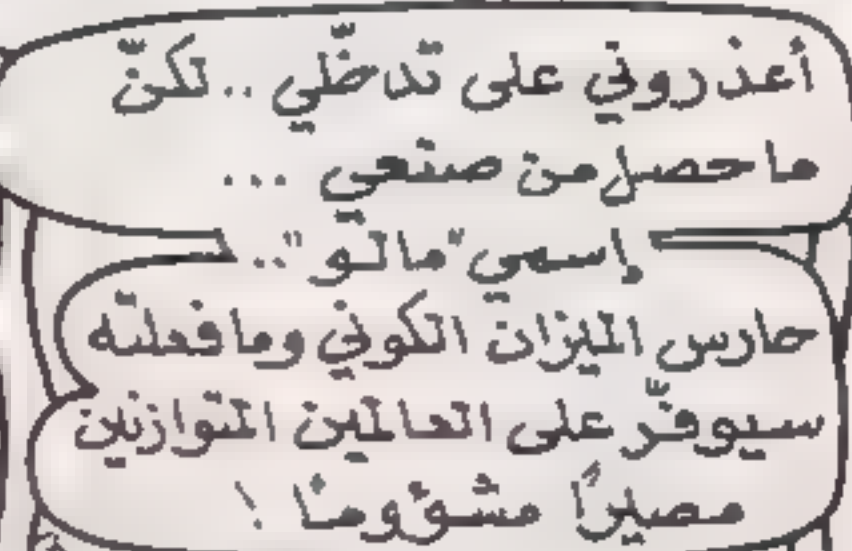 أعذروني على تدخّلي .. لكنّ
ما حصل من صنعي ...
إسمي "مالو" ..
حارس الميزان الكوني وما فعلته
سيوفّر على العالمين المتوازنين
مصيرًا مشؤومًا !